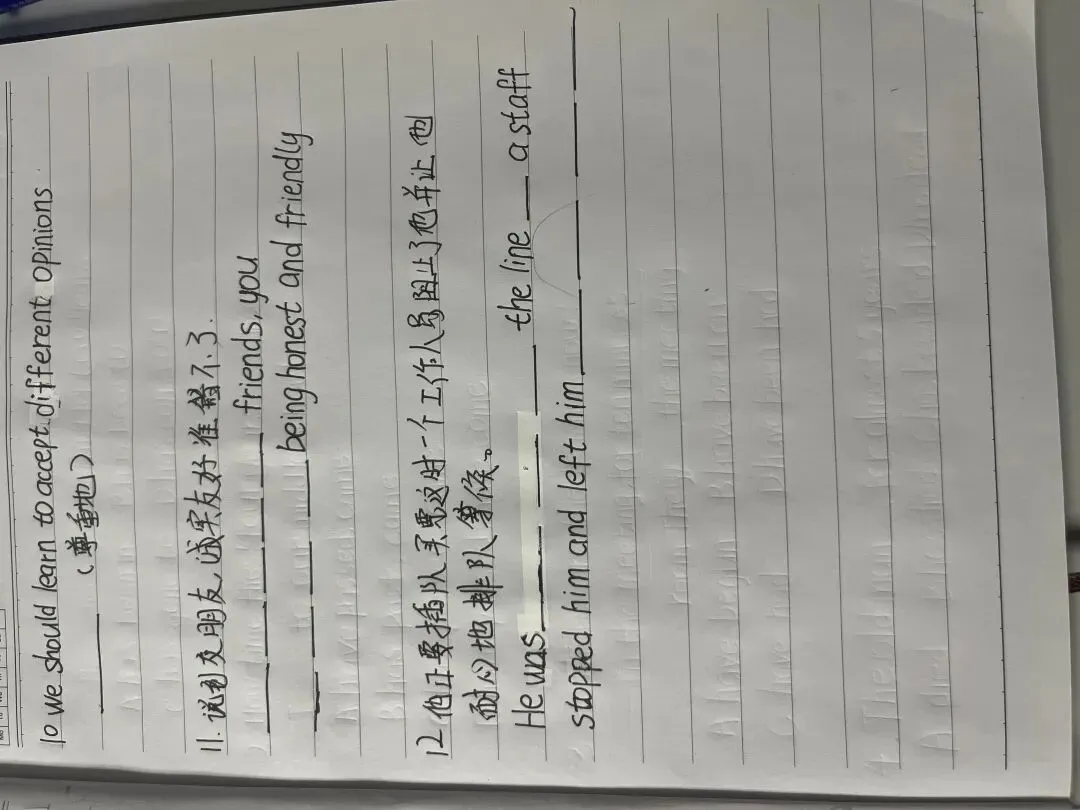 10 we should learn to accept different opinions
____ (尊重地)
11. 说到交朋友,诚实友好准错不了.
____ ____ ____ ____ friends, you
____ ____ ____ ____ being honest and friendly
12 他正要插队买票这时一个工作人员阻止了他并让他
耐心地排队等候。
He was ____ ____ ____ ____ the line ____ a staff
stopped him and left him ____ ____ ____ ____ ____